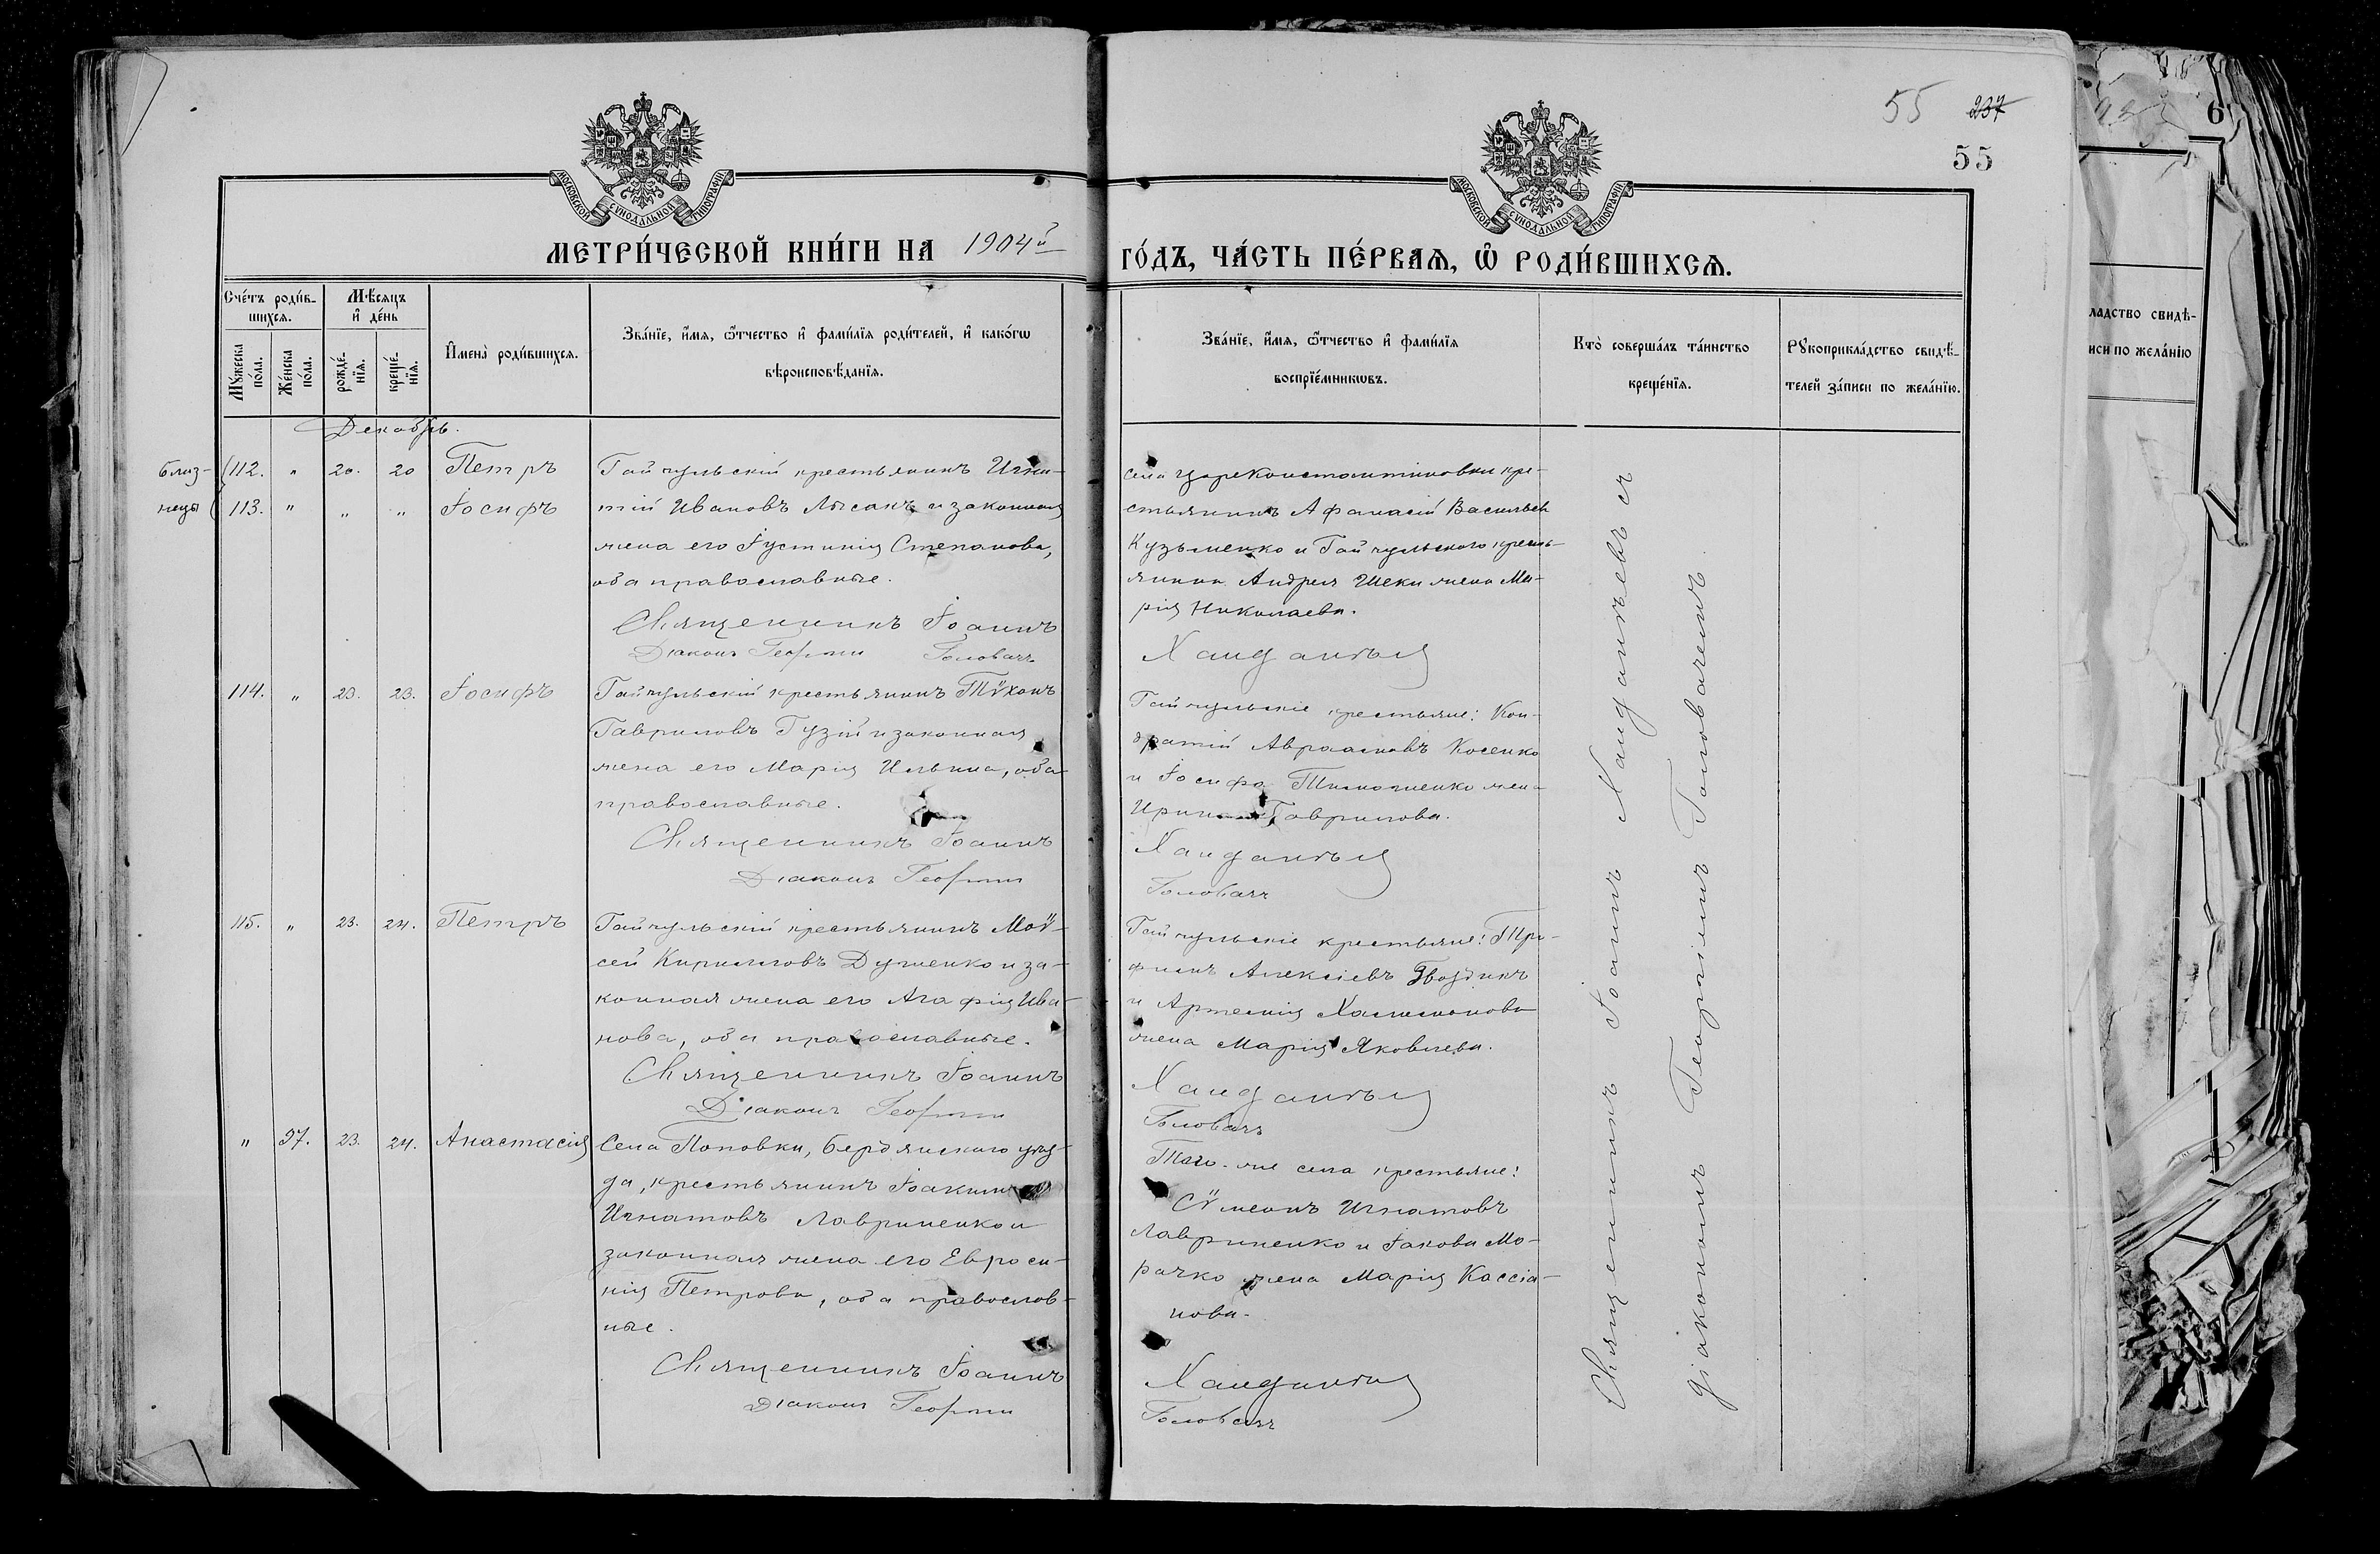 55 237
55
МОСКОВСКОЙ СѴНОДАЛЬНОЙ ТИПОГРАФІИ
МОСКОВСКОЙ СѴНОДАЛЬНОЙ ТИПОГРАФІИ
МЕТРИ́ЧЕСКОЙ КНИ́ГИ НА 1904й
ГО́ДЪ, ЧА́СТЬ ПЕ́РВАѦ, Ѽ РОДИ́ВШИХСѦ.
Сче́тъ роди́в-
шихсѧ.
Мꙋ́жеска по́ла.
Же́нска по́ла.
Мѣ́сѧцъ
и҆ де́нь
рожде́-
нїѧ.
креще́-
нїѧ.
И҆мена̀ роди́вшихсѧ.
Зва́нїе, и҆́мѧ, ѻ҆́тчество и҆ фами́лїѧ роди́телей, и҆ како́гѡ
вѣроисповѣ́данїѧ.
Зва́нїе, и҆́мѧ, ѻ҆́тчество и҆ фами́лїѧ
воспрїе́мникѡвъ.
Кто̀ соверша́лъ та́инство
креще́нїѧ.
Рꙋкоприкла́дство свидѣ́-
телей за́писи по жела́нїю.
Декабрь.
близ-
нецы
112. " 20. 20 Петръ
113. " " " Іосифъ
Гайчульскій крестьянинъ Игна-
тій Ивановъ Лысакъ и законная
жена его Іустинія Степанова,
оба православные.
Священникъ Іоаннъ
Діаконъ Георгій Головачъ
села Цареконстантиновки кре-
стьянинъ Афанасій Васильевъ
Кузьменко и Гайчульскаго кресть-
янина Андрея Шеки жена Ма-
рія Николаева.
Ханданѣы
114. " 23. 23. Іосифъ
Гайчульскій крестьянинъ Тѵхонъ
Гавриловъ Гузій и законная
жена его Марія Ильина, оба
православные.
Священникъ Іоаннъ
Діаконъ Георгій
Гайчульскіе крестьяне: Кон-
дратій Авраамовъ Косенко
и Іосифа Тимошенко жена
Ирина Гаврилова.
Головачъ
115. " 23. 24. Петръ
Гайчульскій крестьянинъ Мой-
сей Кирилловъ Дученко и за-
конная жена его Агафія Ива-
нова, оба православные.
Священникъ Іоаннъ
Діаконъ Георгій
Гайчульскіе крестьяне: Тро-
фимъ Алексіевъ Гвоздикъ
и Артемія Халимонова
жена Марія Яковлева.
Головачъ
" 97. 23. 24. Анастасія
Села Поповки, Бердянскаго уѣз-
да, крестьянинъ Іоакимъ
Игнатовъ Лавриненко и
законная жена его Евроси-
нія Петрова, оба православ-
ные.
Священникъ Іоаннъ
Діаконъ Георгій
Того-же села крестьяне:
Сѵмеонъ Игнатовъ
Лавриненко и Іакова Мо-
рачко жена Марія Кассіа-
нова.
Головачъ
Священникъ Іоаннъ съ
діакономъ Георгіемъ Головачемъ.
6
ладство свидѣ-
иси по жела́нїю